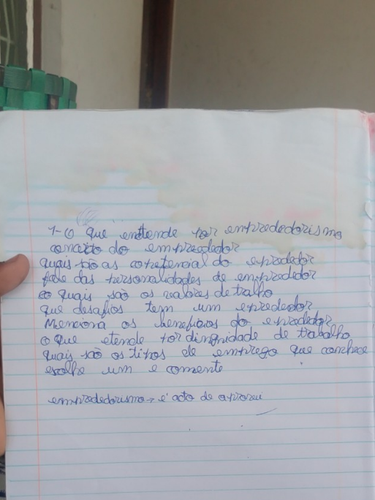 1-O que entende por emprededorismo
conceito do empreededor
quais são as copetencial do eprededor
fale das personalidades de empredador
co quais são os valores de tralho
que desafios tem um epredededor
Menciona os beneficios do epredetor
o que etende por dinguidade de trabalho
quais são os tipos de emprego que conhece
escolhe um e comente
emprededorismo → é acto de